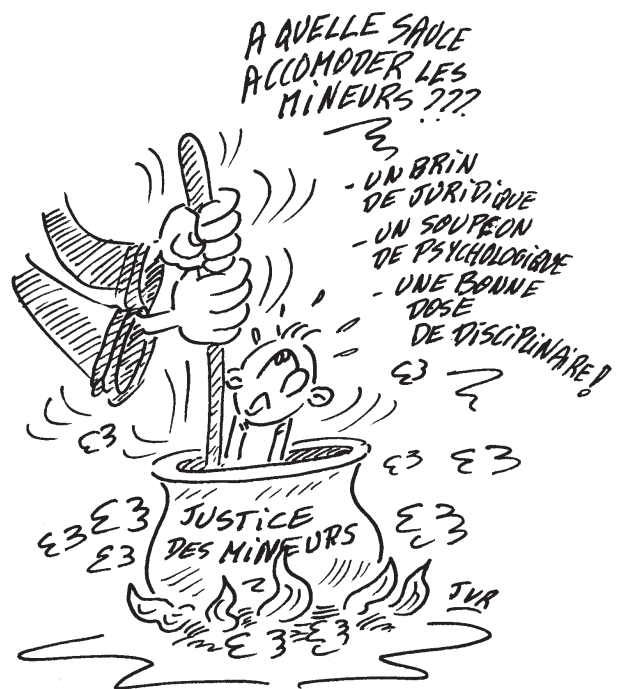 A QUELLE SAUCE
ACCOMODER LES
MINEURS ???
- UN BRIN
DE JURIDIQUE
- UN SOUPÇON
DE PSYCHOLOGIQUE
- UNE BONNE
DOSE
DE DISCIPLINAIRE !
JUSTICE
DES MINEURS
JVR